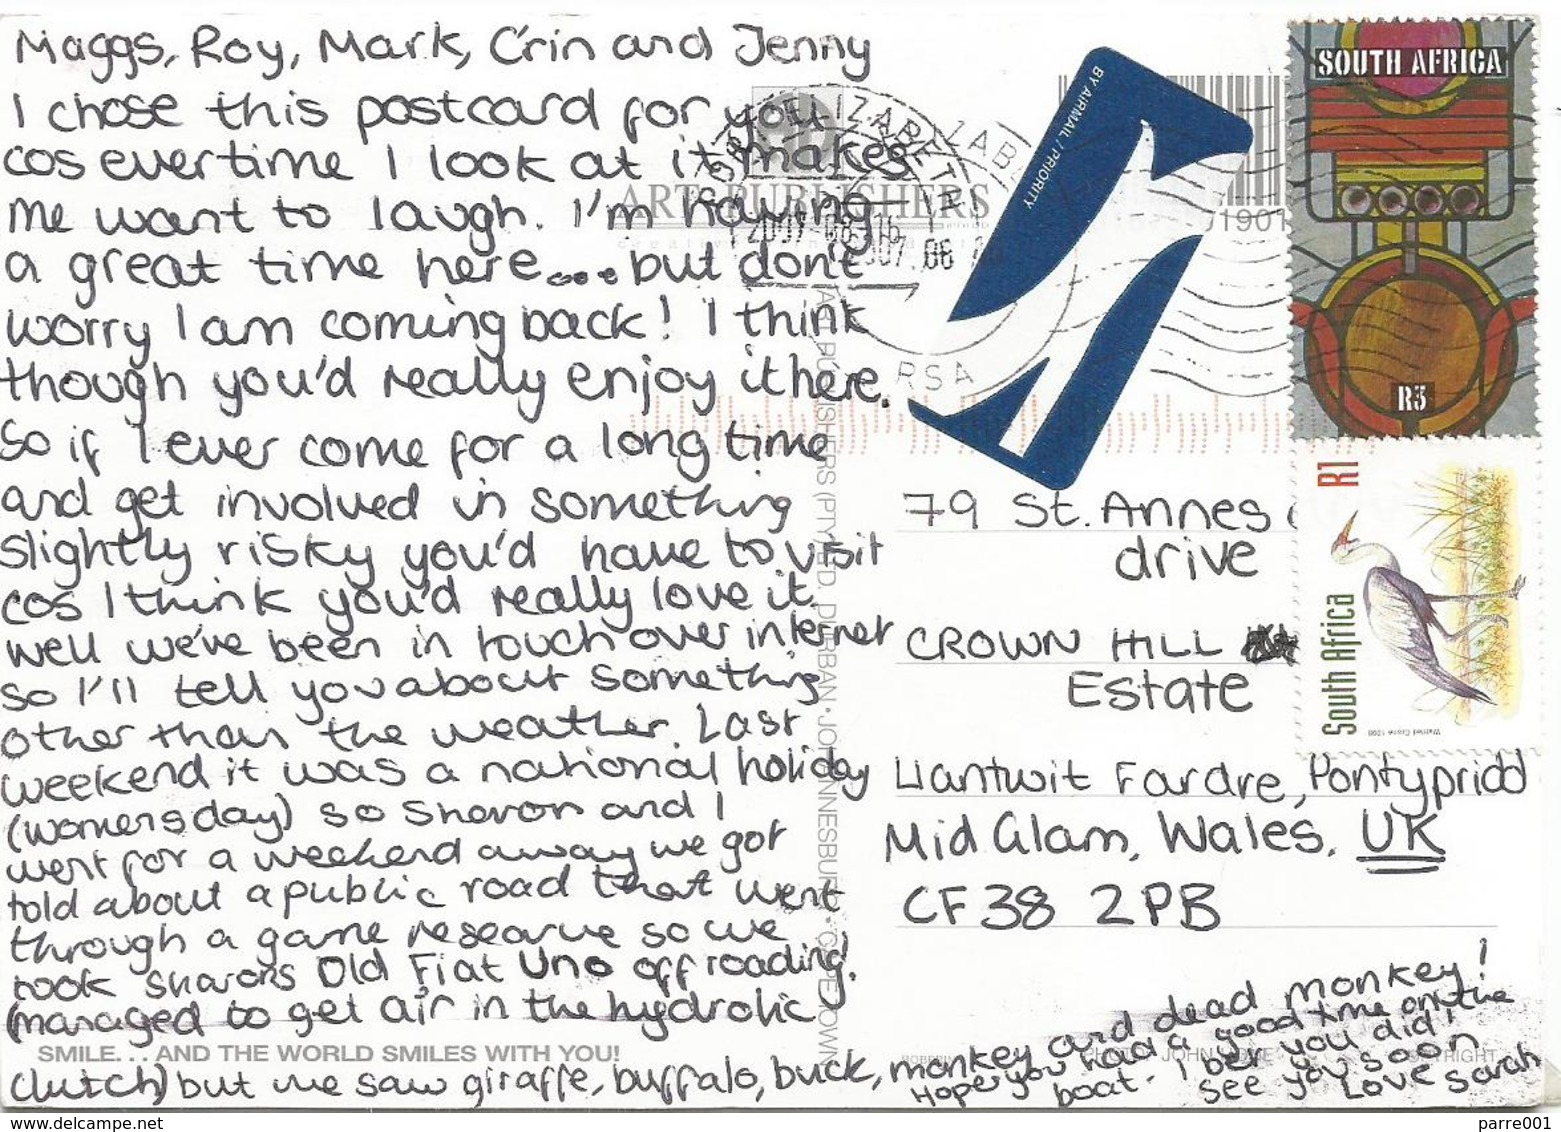 Maggs, Roy, Mark, C'rin and Jenny
I chose this postcard for you
cos evertime I look at it makes
me want to laugh. I'm having
a great time here.... but don't
worry I am coming back! I think
though you'd really enjoy it here.
So if I ever come for a long time
and get involved in something
slightly risky you'd have to visit
cos I think you'd really love it.
well we've been in touch over internet
so I'll tell you about something
other than the weather. Last
weekend it was a national holiday
(womensday) so Sharon and I
went for a weekend away we got
told about a public road that went
through a game researve so we
took sharons Old Fiat Uno off roading!
(managed to get air in the hydrolic
clutch) but we saw giraffe, buffalo, buck, monkey and dead monkey!
Hope you had a good time on the
boat. I bet you did!
See you soon
Love Sarah
SMILE... AND THE WORLD SMILES WITH YOU!
ART PUBLISHERS
ART PUBLISHERS (PTY) LTD, DURBAN • JOHANNESBURG • CAPE TOWN
PORT ELIZABETH
2007-08-16
2007.08
RSA
BY AIRMAIL / PRIORITY
1901
SOUTH AFRICA
R3
R1
South Africa
Wattled Crane 1998
79 St. Annes
drive
CROWN HILL
Estate
Llantwit Fardre, Pontypridd
Mid Glam, Wales, UK
CF38 2PB
COPYRIGHT
delcampe.net
parre001